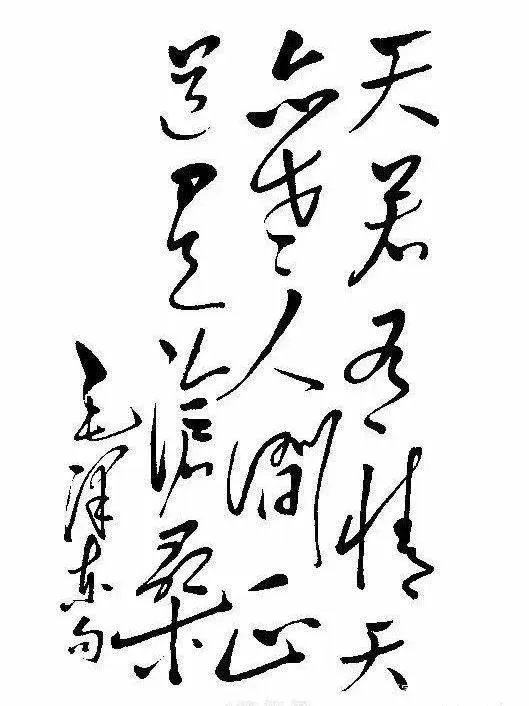 天若有情天
亦老人间正
道是滄桑
毛泽东句